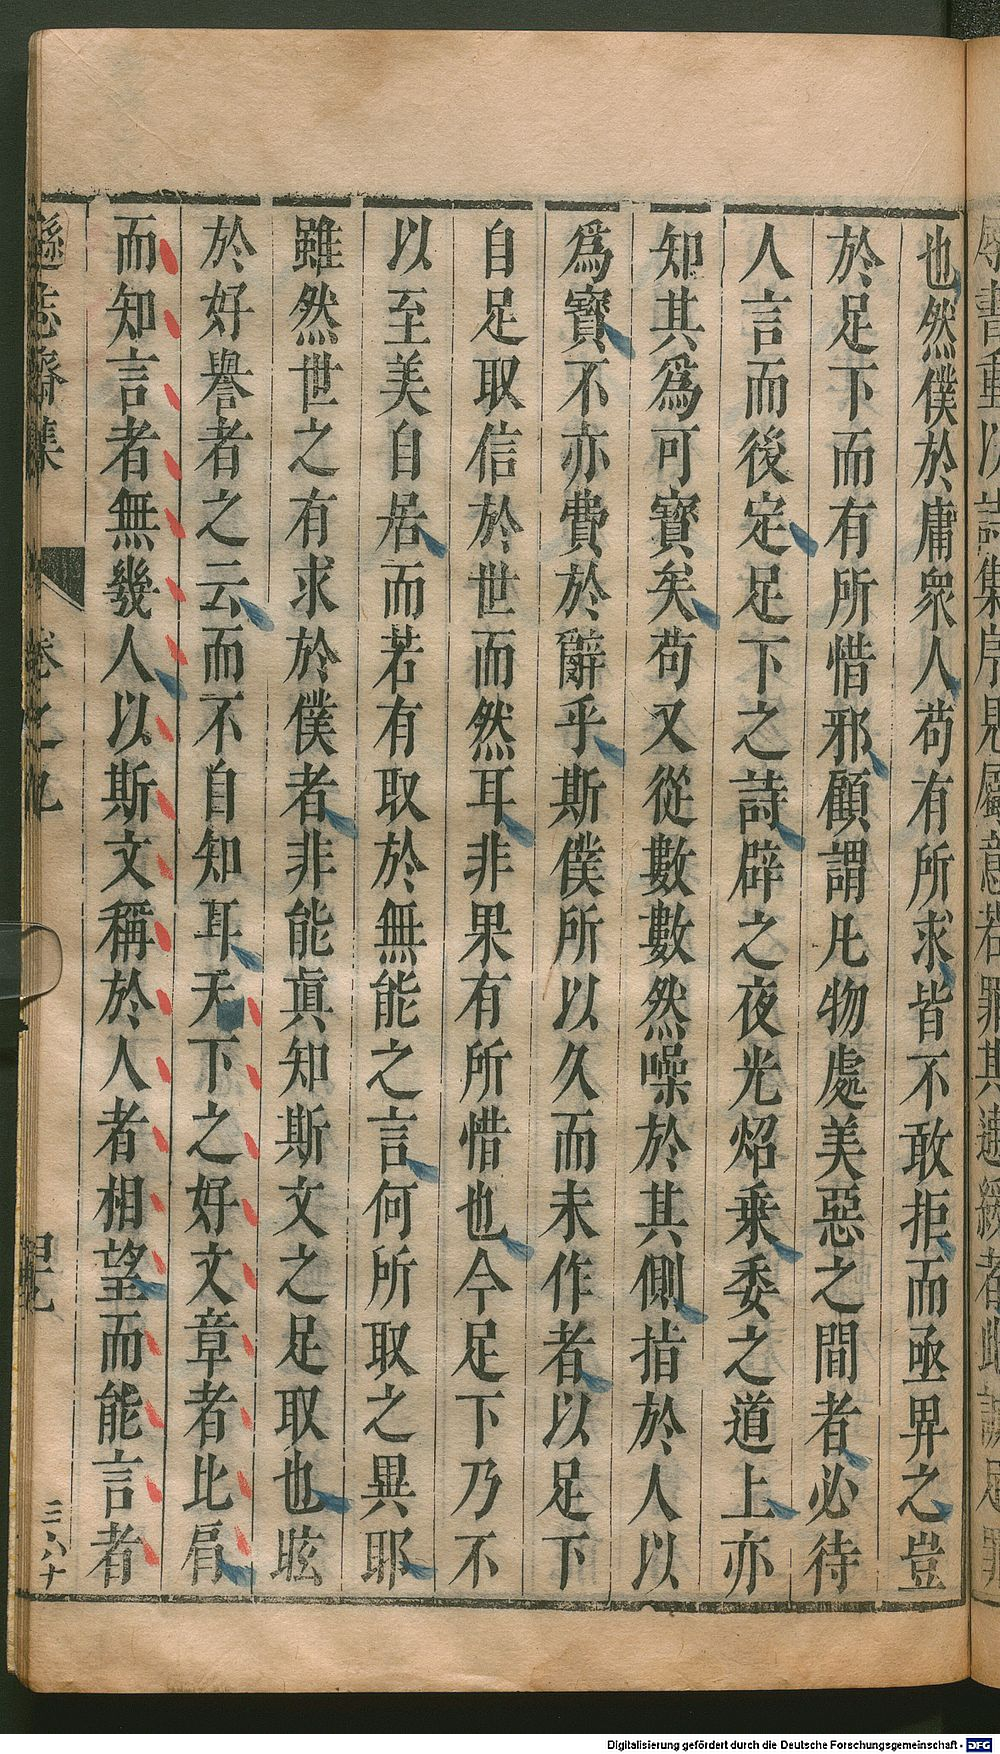 也然僕於庸衆人苟有所求皆不敢拒而亟畀之豈
於足下而有所惜邪顧謂凡物處美惡之間者必待
人言而後定足下之詩辟之夜光炤乗委之道上亦
知其爲可寶矣苟又從數數然噪於其側指於人以
爲寶不亦費於辭乎斯僕所以久而未作者以足下
自足取信於世而然耳非果有所惜也今足下乃不
以至美自居而若有取於無能之言何所取之異耶
雖然世之有求於僕者非能眞知斯文之足取也眩
於好譽者之云而不自知耳天下之好文章者比肩
而知言者無幾人以斯文稱於人者相望而能言者
遜志齋集
卷之九
三〤六十
Digitalisierung gefördert durch die Deutsche Forschungsgemeinschaft - DFG